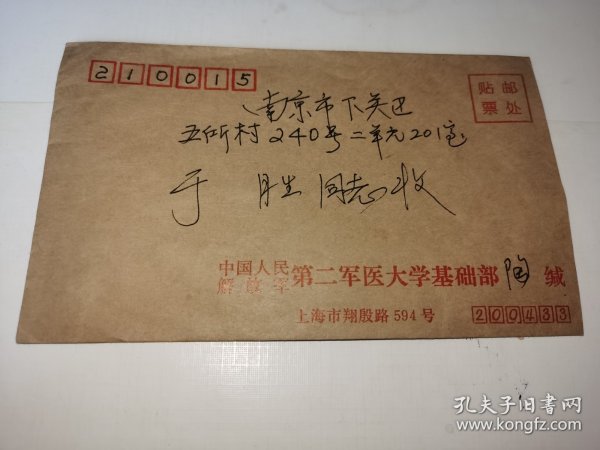 210015
贴邮
票处
南京市下关区
五所村240号二单元201室
于胜同志收
中国人民
解放军
第二军医大学基础部 陶 缄
上海市翔殷路594号
200433
孔夫子旧书网
www.kongfz.com